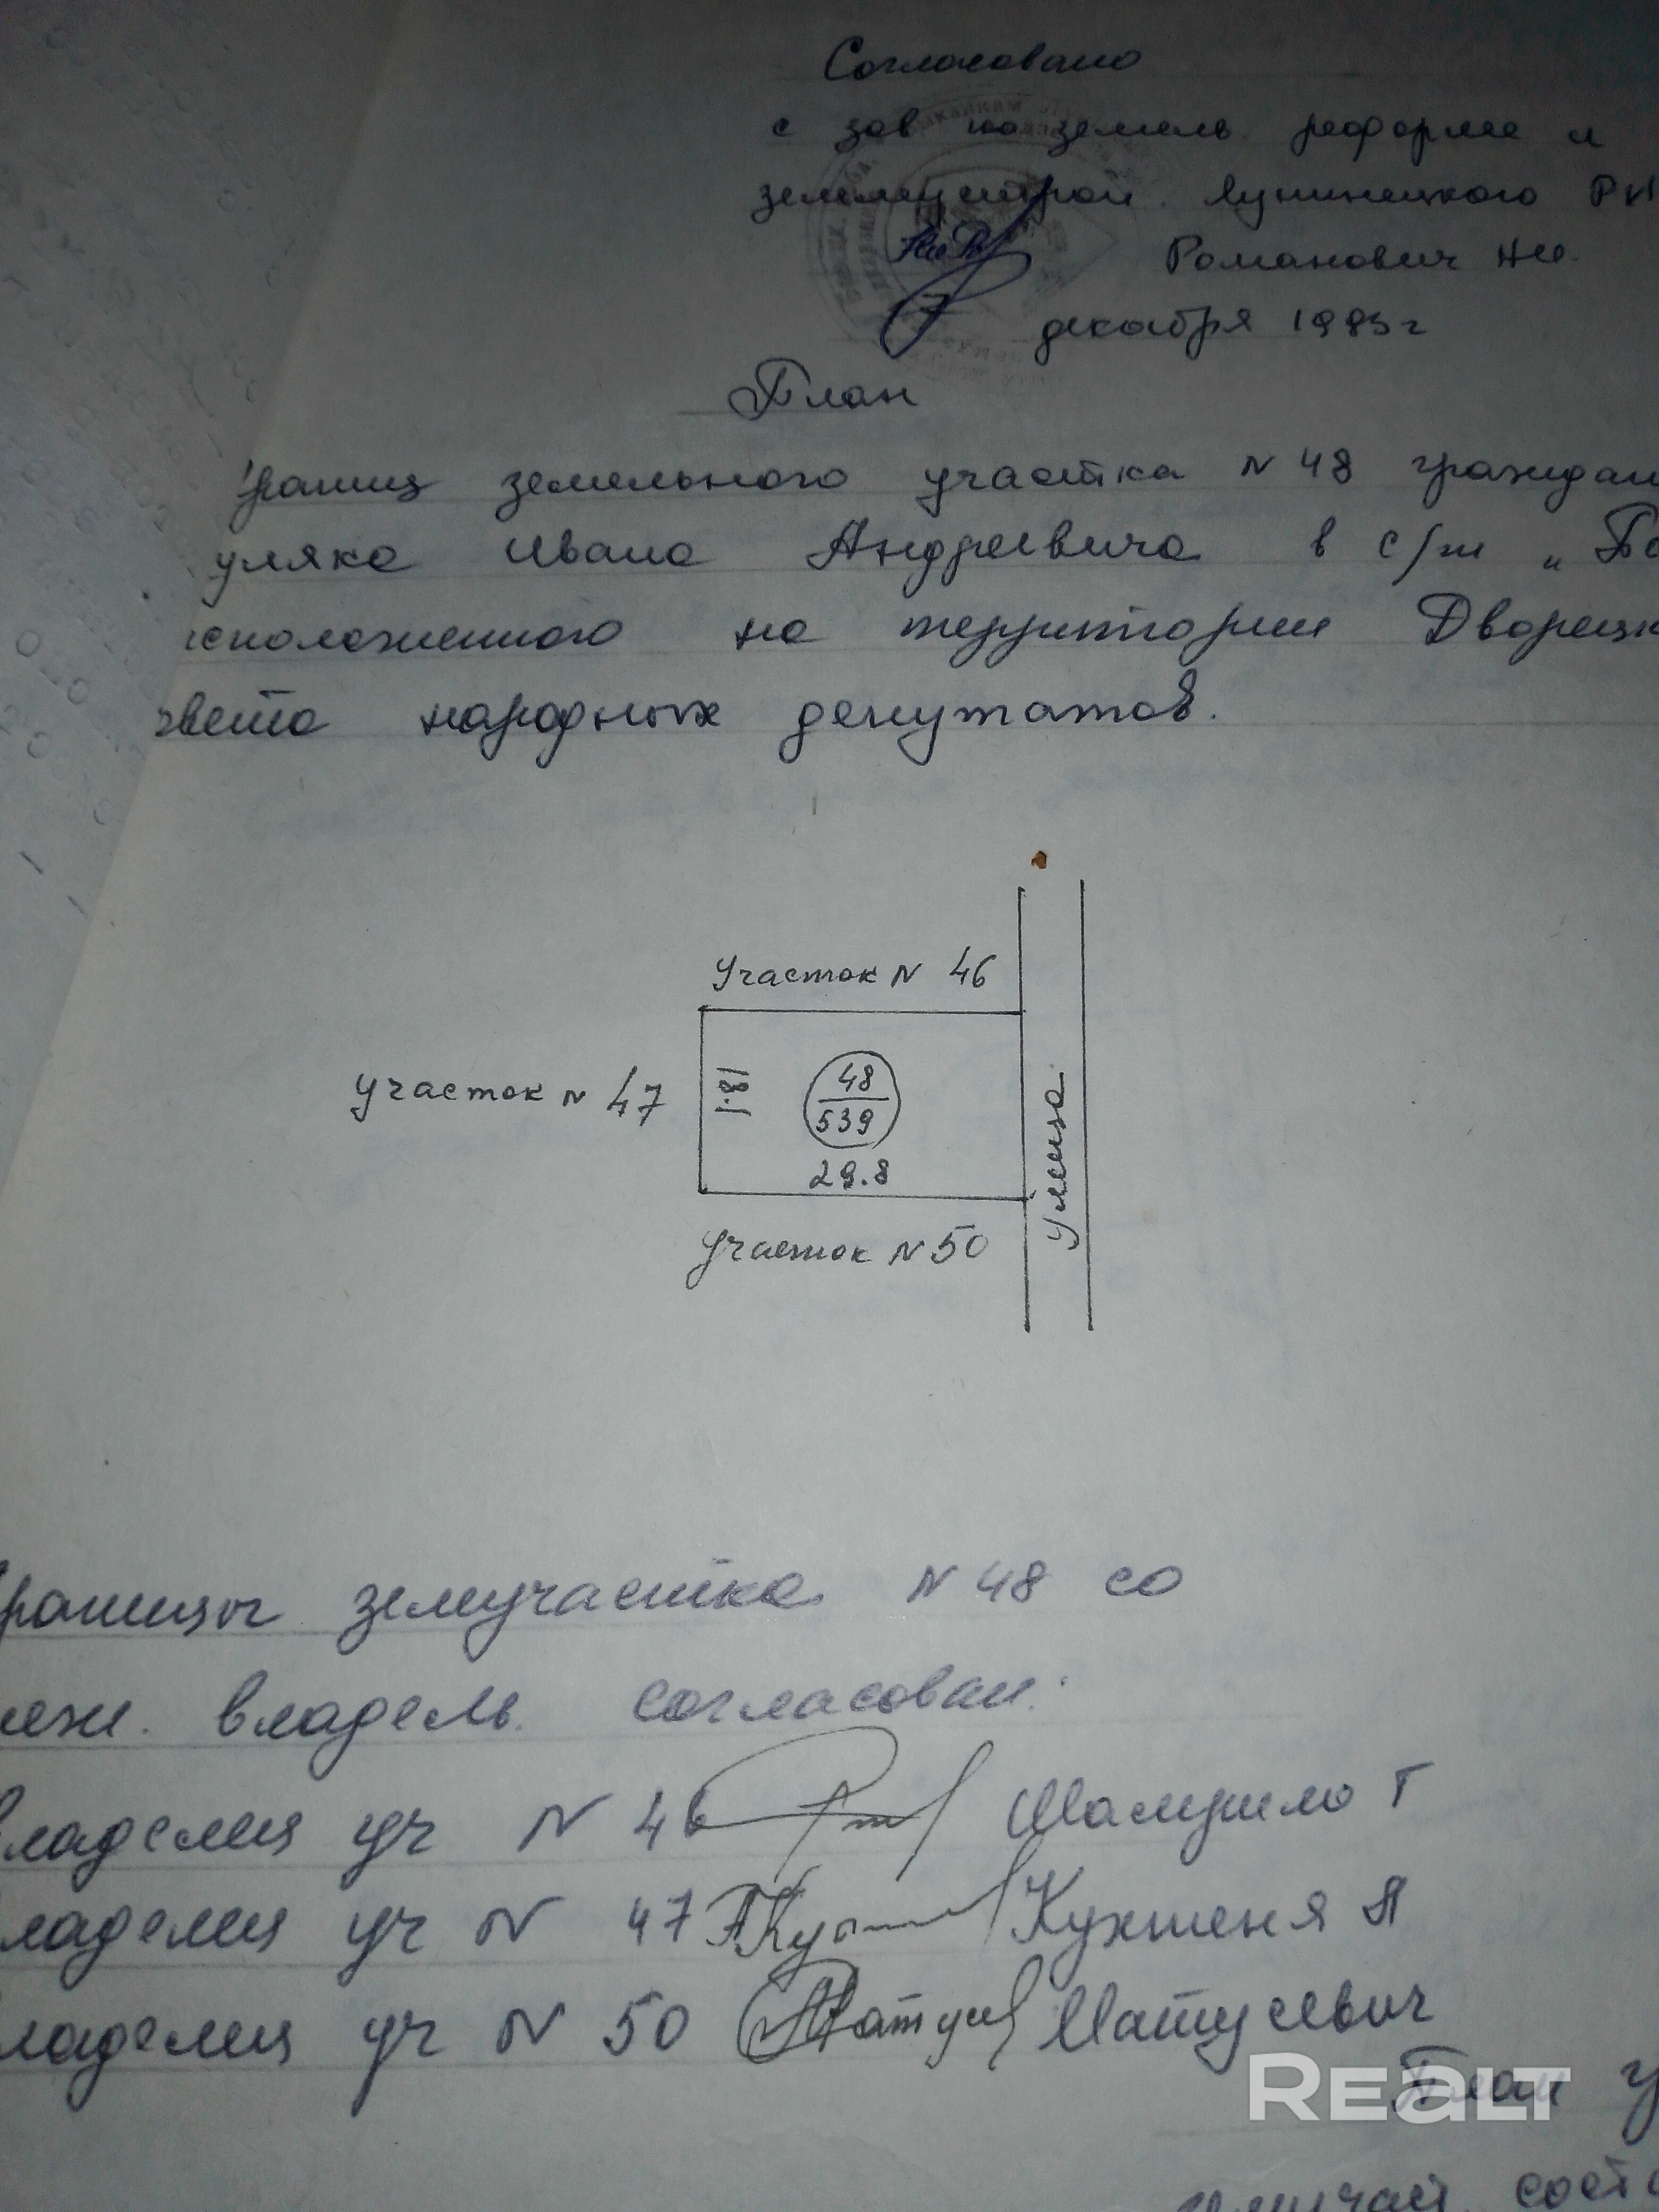 Согласовано
с зав по земель. реформе и
землеустрой. Лунинецкого РИ
Романович
7 декабря 1993 г
План
границ земельного участка N 48 граждан
уляка Ивана Андреевича в с/т „Бе
сположенного на территории Дворецк
овета народных депутатов.
Участок N 46
Участок N 47
18.1
48
539
29.8
Улица.
Участок N 50
Границы земучастка N 48 со
меж. владель. согласован:
владелец уч N 46 Шамшило Г
владелец уч N 47 Кухтеня А
владелец уч N 50 Матусевич
План
сост
REALT